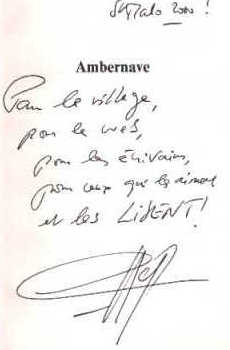 St Malo 2000 !
Ambernave
Pour le village,
pour le web,
pour les écrivains,
pour ceux que les aiment
et les LISENT !